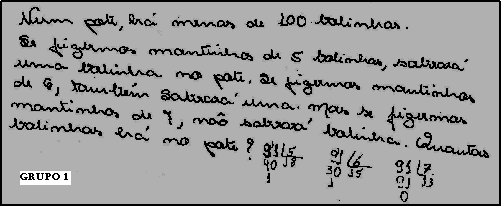 Num pote, há menos de 100 balinhas.
Se fizermos montinhos de 5 balinhas, sobrará
uma balinha no pote. Se fizermos montinhos
de 6, também sobrará uma. Mas se fizermos
montinhos de 7, não sobrará balinha. Quantas
balinhas há no pote? 91 5 91 6 91 7
40 18 30 15 91 13
1 1 0
GRUPO 1